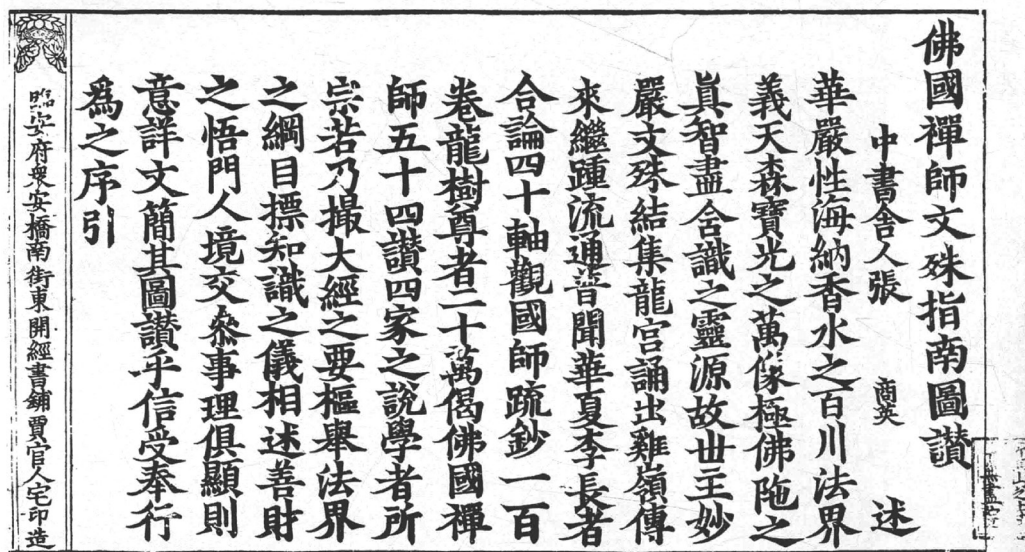 佛國禪師文殊指南圖讃
中書舍人張 商英 述
華嚴性海納香水之百川法界
義天森寶光之萬像極佛陁之
眞智盡含識之靈源故世主妙
嚴文殊結集龍宮誦出雞嶺傳
來繼踵流通普聞華夏李長者
合論四十軸觀國師䟽鈔一百
卷龍樹尊者二十萬偈佛國禪
師五十四讃四家之說學者所
宗若乃撮大經之要樞舉法界
之綱目摽知識之儀相述善財
之悟門人境交叅事理俱顯則
意詳文簡其圖讃乎信受奉行
爲之序引
臨安府衆安橋南街東開經書鋪賈官人宅印造